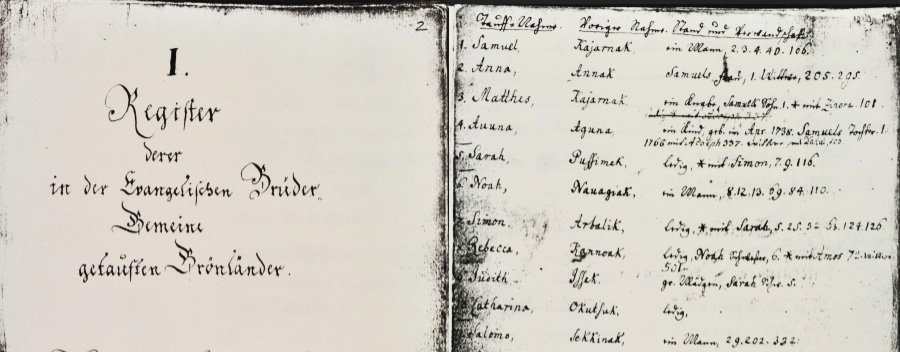 2
I.
Register
derer
in der Evangelischen Brüder-
Gemeine
getauften Grönländer.
Tauff-Nahme. Voriger Nahme. Stand und Verwandschaft
1. Samuel, Kajarnak ein Mann, 2. 3. 4. 40. 106.
2. Anna, Annak Samuels Frau, 1. 205. 295.
3. Matthes, Kajarnak ein Knabe, Samuels Sohn. 1. * mit 101.
4. Aguna, ein Kind, geb. im Apr. 1738. Samuels 1.
1766 mit Adolph 337.
5. Sarah, Pussimek, ledig, * mit Simon, 7. 9. 116.
6. Noah, Navagiak, ein Mann, 8. 12. 13. 69. 84. 110.
7. Simon, Arbalik, ledig, * mit Sarah, 5. 25. 32. 124. 126
Rebecca, Kannoak, ledig, Noah Schwester, 6. * mit Amos
Judith Issek. gr. Mädgen, Sarah 5.
Catharina, Okutsuk, ledig,
Salomo, Sekkinak, ein Mann, 29. 202. 332.